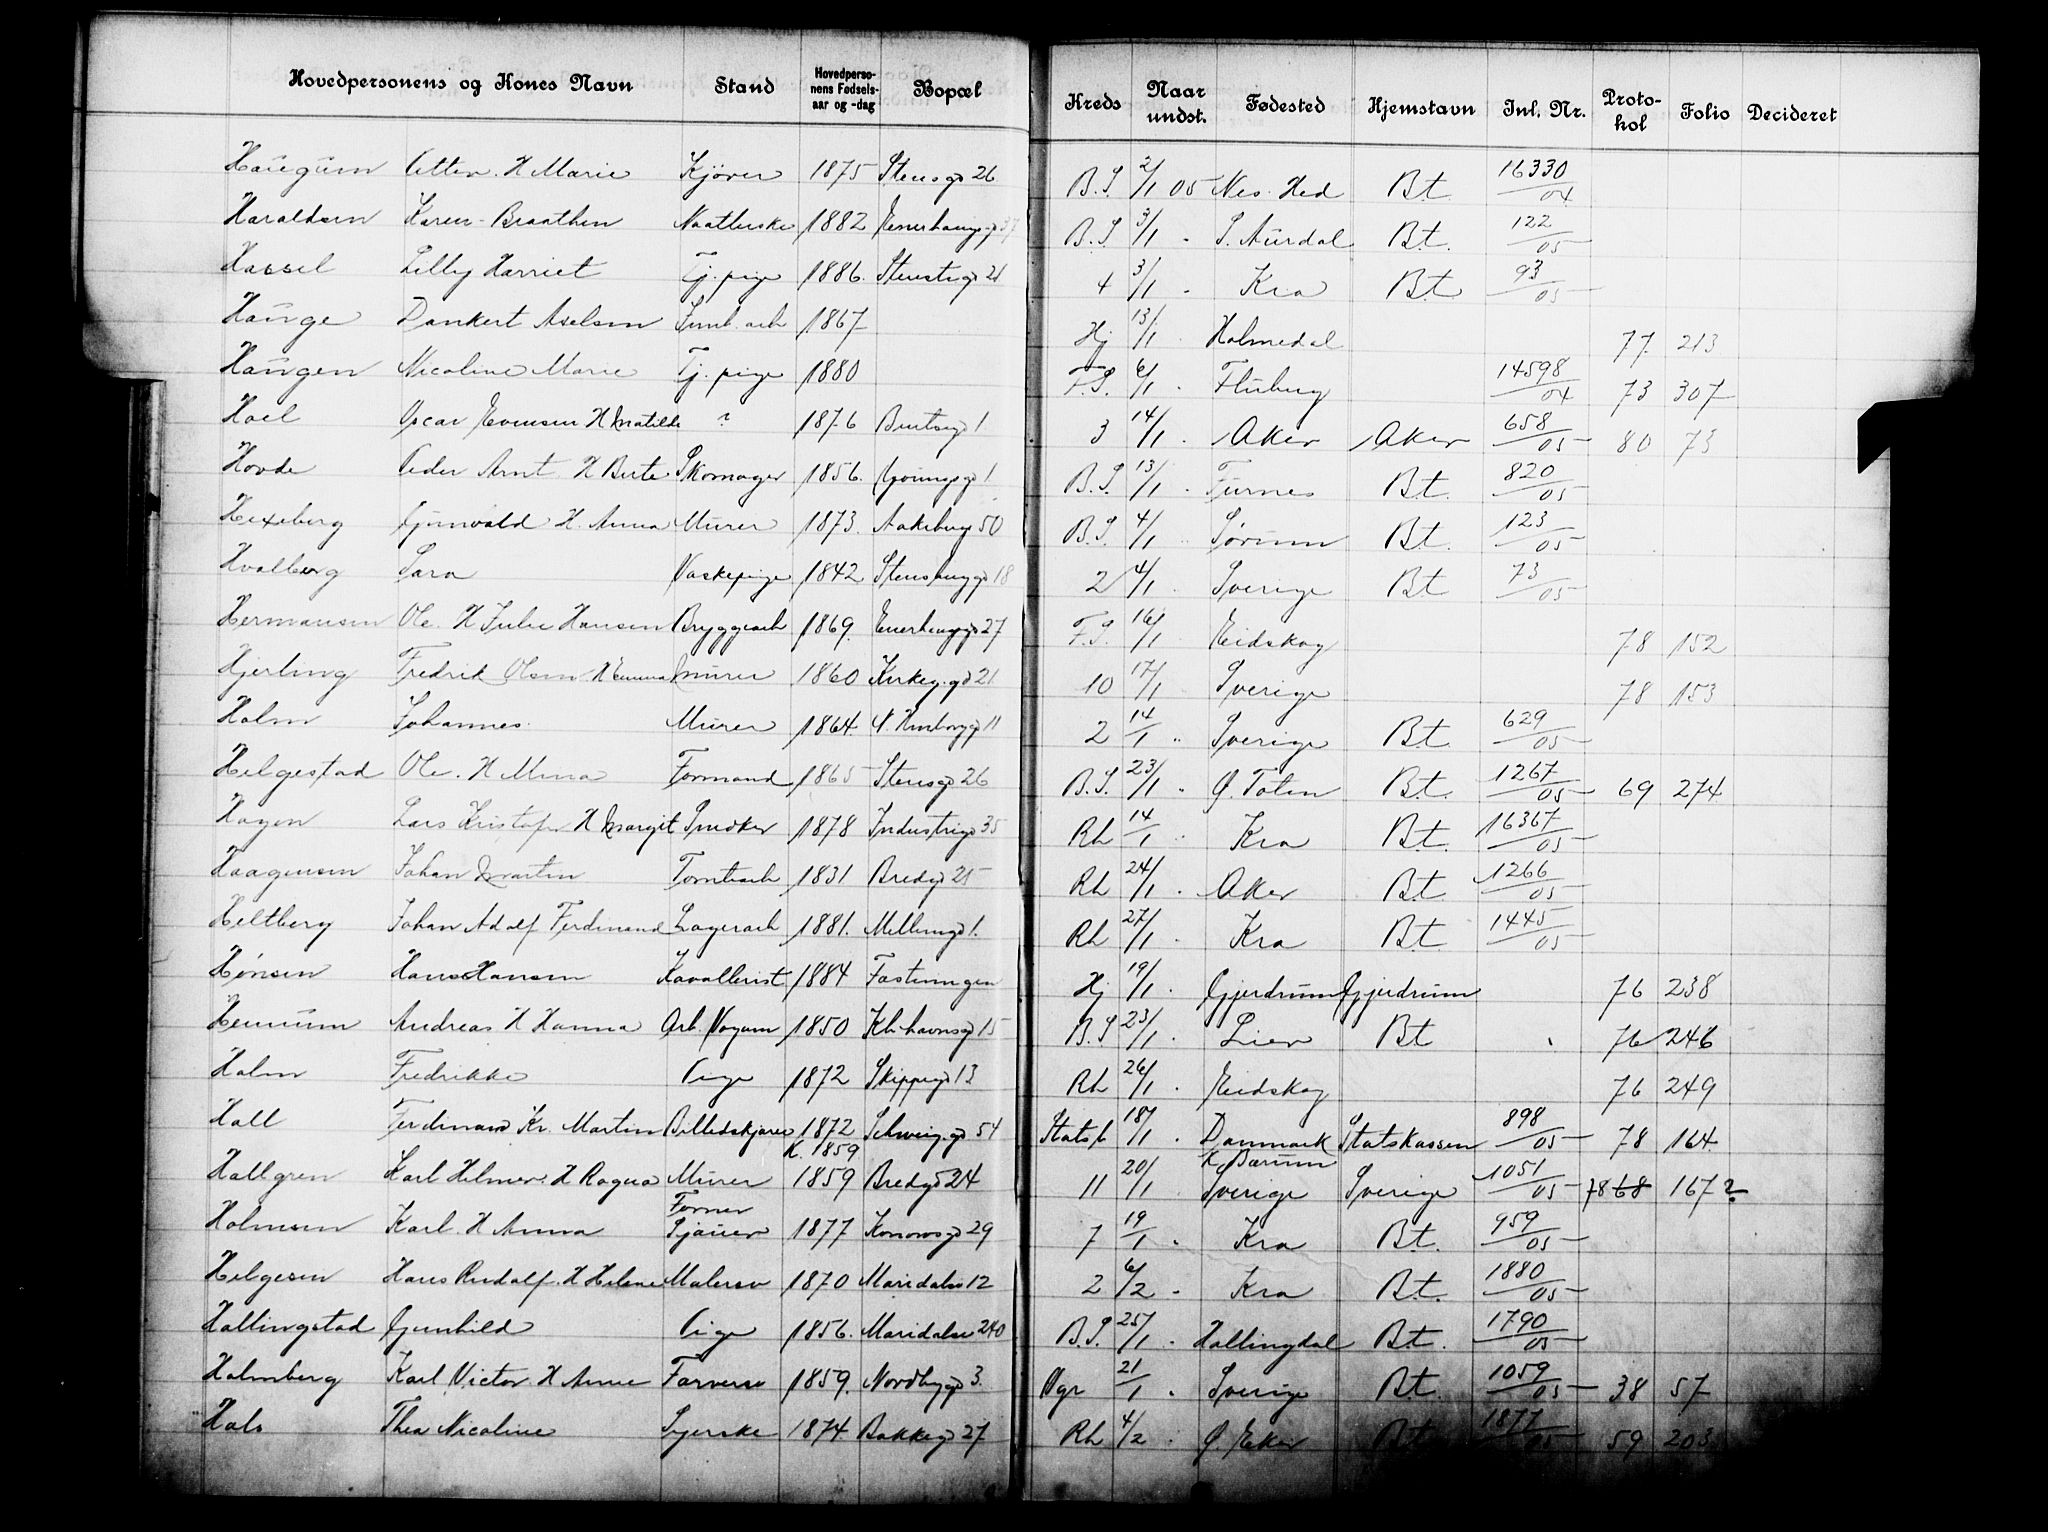 Hovedpersonens og Kones Navn Stand Hovedpersonens Fødselsaar og -dag Bopæl Kreds Naar undst. Fødested Hjemstavn Inl. Nr. Protokol Folio Decideret
Haugum Otter. H Marie Kjører 1875 Stensgd 26 B.S. 2/1 05 Nes. Hed Bt 16330/04
Haraldsen Karen Braathen 1882 37 B.S. 3/1 " S. Aurdal Bt. 122/05
Hassel Lilly Harriet Tj. pige 1886. 21 4 3/1 " Kra Bt 93/05
Hauge Dankert Axelsen 1867 Hj 13/1 " Holmedal 77. 213
Haugen Nicoline Marie Tj. pige 1880 F.S. 6/1 " Fluberg 14598/04 73 307
Hoel Oscar Evensen H Matilde ? 1876 1 3 14/1 " Aker Aker 658/05 80 73
Hovde Peder Arnt H Berte Skomager 1856. 1 B.S. 13/1 " Furnes Bt. 820/05
Hexeberg Gunvald H. Anna Murer 1873. Aakebergv 50 B.S. 4/1 " Sørum Bt. 123/05
Hvalberg Sara Vaskepige 1842 18 2 4/1 " Sverige Bt 73/05
Hermansen Ole. H Julie Hansen Bryggearb 1869. 27 F.S. 16/1 " Eidskog 78 152
Hjerling Fredrik Olsen H Emma Murer 1860 Kirkeg.gd 21 10 17/1 " Sverige 78 153
Holm Johannes Murer 1864. 11 2 14/1 " Sverige Bt. 629/05
Helgestad Ole. H Mina Formand 1865 Stensgd 26 B.S. 23/1 " Ø. Toten Bt. 1267/05 69 274
Hagen Lars Kristofer H Margit Snedker 1878 Industrigd 35 Rh 14/1 " Kra Bt. 16367/05
Haagensen Johan Martin Tomtearb 1831 Bredgd 25 Rh 24/1 " Aker Bt. 1266/05
Heltberg Johan Adolf Ferdinand Lagerarb 1881. 1. Rh 27/1 " Kra Bt 1445/05
Hønsen Hans Hansen Kavallerist 1884 Fæstningen Hj 19/1 " Gjerdrum Gjerdrum 76 238
Hennum Andreas H Hanna Arb. Vognm 1850 Kbhavnsgd 15 B.S 23/1 " Lier Bt " 76 246
Holm Fredrikke Pige 1872 Skippergd 13 Rh 26/1 " Eidskog 76 249
Hall Ferdinand Kr. Martin Billedskjærer 1872 Schweig.gd 54 Statsb 18/1 " Danmark Statskassen 898/05 78 164.
K. 1859 K Bærum
Hallgren Karl Helmer. H Ragna Murer 1859 Bredgd 24 11 20/1 " Sverige Sverige 1051/05 78 68 167 2
Holmsen Karl. H Anna Former Sjauer 1877 Konowsgd 29 7 19/1 " Kra Bt. 959/05
Helgesen Hans Rudolf. H Helene Malersv 1870 Maridalsv 12 2 6/2 " Kra Bt. 1880/05
Hallingstad Gunhild Pige 1856. Maridalsv 240 B.S. 25/1 " Hallingdal Bt. 1790/05
Holmberg Karl Victor. H Anne Farversv 1859. Nordbygd 3. Vgr 21/1 " Sverige Bt. 1059/05 38 57
Hals Thea Nicoline Syerske 1874. Bakkegd 27 Rh 4/2 " Ø Eker Bt 1877/05 59 203